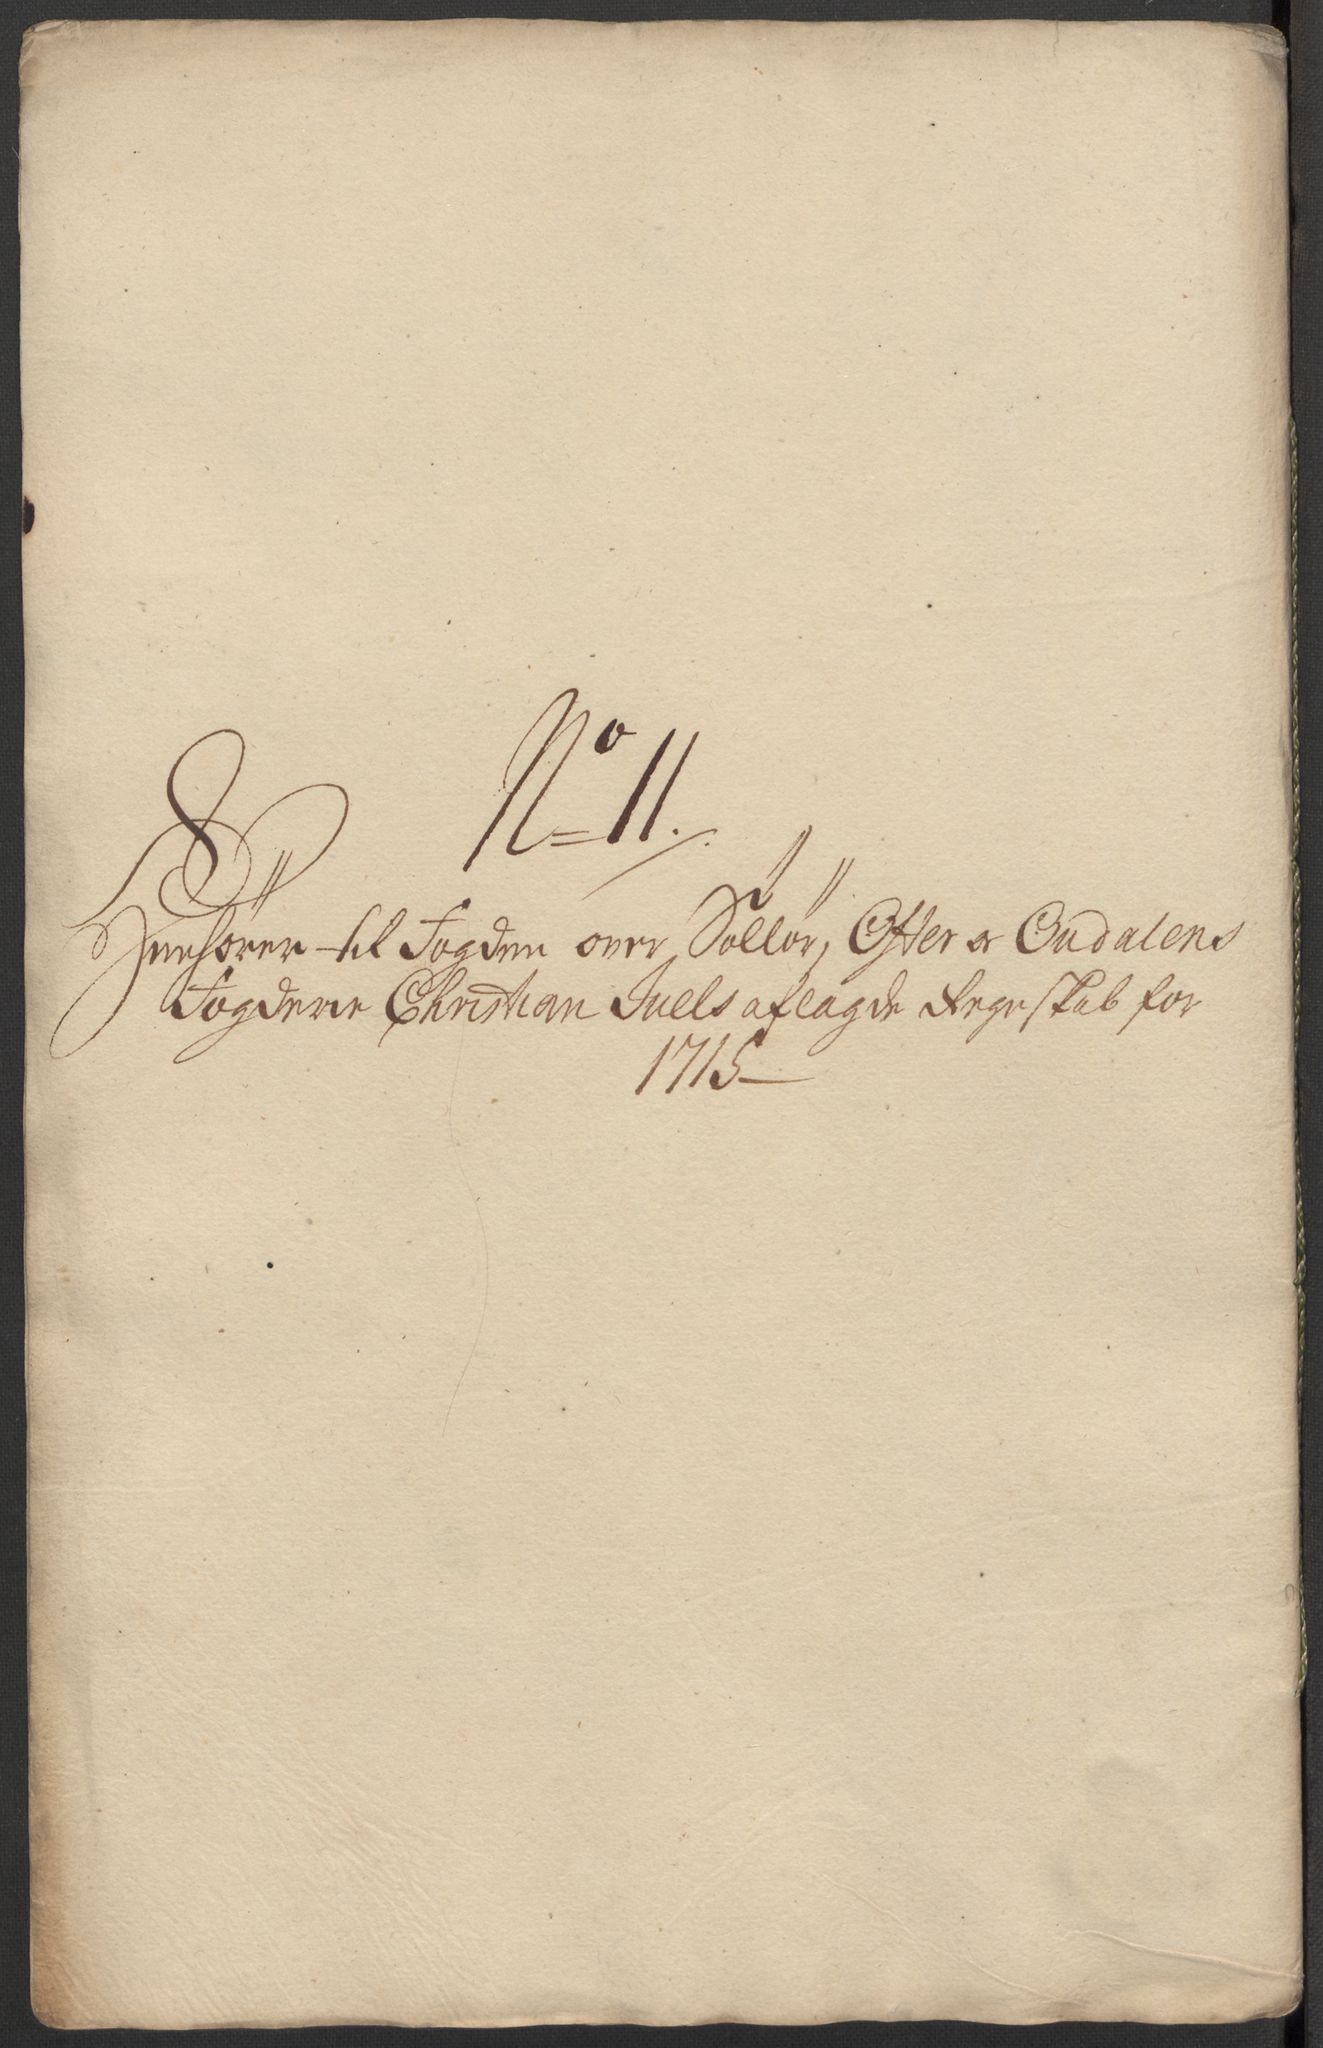 No 11.
Henhører til Fogden over Sollør, Øster og Oudalens
Fogderie Christian Juels aflagde Regnskab for
1715